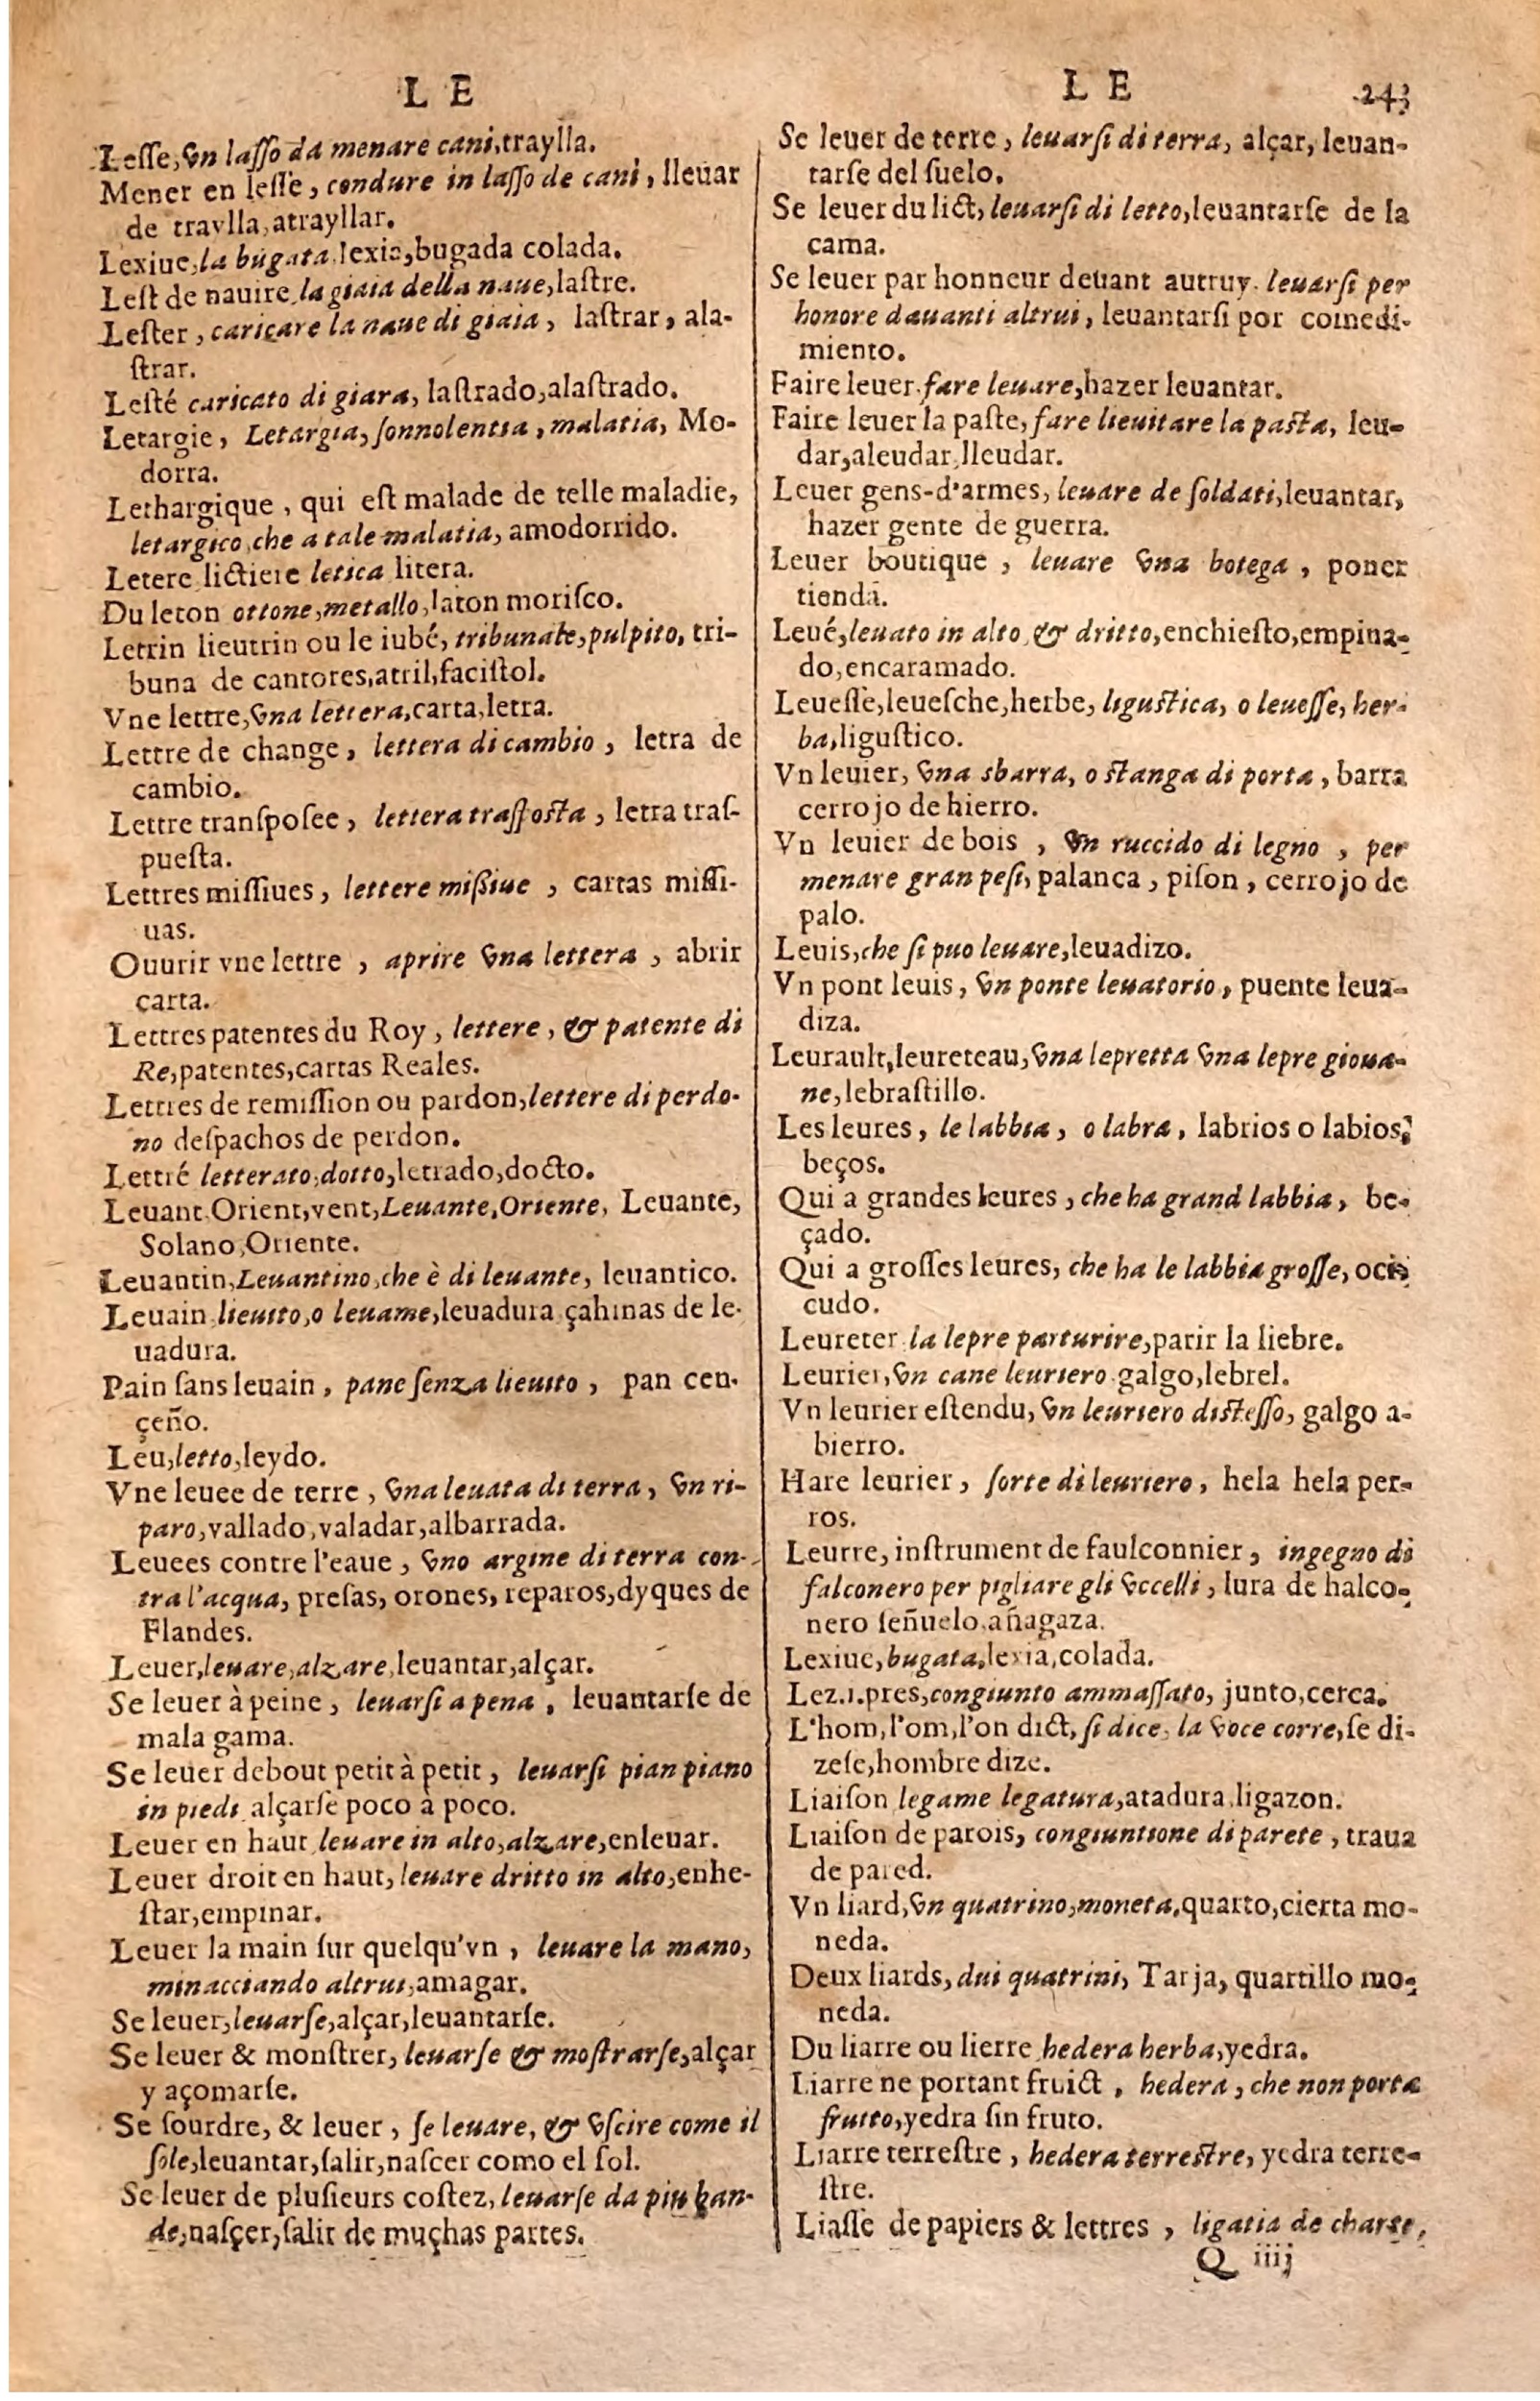 L E
Lesse, vn lasso da menare cani, traylla.
Mener en lesse, condure in lasso de cani, lleuar
de traylla, atrayllar.
Lexiue, la bugata lexia, bugada colada.
Lest de nauire, la giaia della naue, lastre.
Lester, caricare la naue di giaia, lastrar, ala-
strar.
Lesté caricato di giara, lastrado, alastrado.
Letargie, Letargia, sonnolentia, malatia, Mo-
dorra.
Lethargique, qui est malade de telle maladie,
letargico, che a tale malatia, amodorrido.
Letere lictiere letica litera.
Du leton ottone, metallo, laton morisco.
Letrin lieutrin ou le iubé, tribunale, pulpito, tri-
buna de cantores, atril, facistol.
Vne lettre, vna lettera, carta, letra.
Lettre de change, lettera di cambio, letra de
cambio.
Lettre transposee, lettera trasposta, letra tras-
puesta.
Lettres missiues, lettere missiue, cartas missi-
uas.
Ouurir vne lettre, aprire vna lettera, abrir
carta.
Lettres patentes du Roy, lettere, & patente di
Re, patentes, cartas Reales.
Lettres de remission ou pardon, lettere di perdo-
no despachos de perdon.
Lettré letterato, dotto, letrado, docto.
Leuant Orient, vent, Leuante, Oriente, Leuante,
Solano, Oriente.
Leuantin, Leuantino, che è di leuante, leuantico.
Leuain lieuito, o leuame, leuadura çahinas de le-
uadura.
Pain sans leuain, pane senza lieuito, pan cen-
çeño.
Leu, letto, leydo.
Vne leuee de terre, vna leuata di terra, vn ri-
paro, vallado, valadar, albarrada.
Leuees contre l'eaue, vno argine di terra con-
tra l'acqua, presas, orones, reparos, dyques de
Flandes.
Leuer, leuare, alzare, leuantar, alçar.
Se leuer à peine, leuarsi a pena, leuantarse de
mala gama.
Se leuer debout petit à petit, leuarsi pian piano
in piedi alçarse poco à poco.
Leuer en haut leuare in alto, alzare, enleuar.
Leuer droit en haut, leuare dritto in alto, enhe-
star, empinar.
Leuer la main sur quelqu'vn, leuare la mano,
minacciando altrui, amagar.
Se leuer, leuarse, alçar, leuantarse.
Se leuer & monstrer, leuarse & mostrarse, alçar
y açomarse.
Se sourdre, & leuer, se leuare, & vscire come il
sole, leuantar, salir, nascer como el sol.
Se leuer de plusieurs costez, leuarse da piu ban-
de, nasçer, salir de muçhas partes.
L E 243
Se leuer de terre, leuarsi di terra, alçar, leuan-
tarse del suelo.
Se leuer du lict, leuarsi di letto, leuantarse de la
cama.
Se leuer par honneur deuant autruy. leuarsi per
honore dauanti altrui, leuantarsi por comedi-
miento.
Faire leuer. fare leuare, hazer leuantar.
Faire leuer la paste, fare lieuitare la pasta, leu-
dar, aleudar, lleudar.
Leuer gens-d'armes, leuare de soldati, leuantar,
hazer gente de guerra.
Leuer boutique, leuare vna botega, poner
tienda.
Leué, leuato in alto, & dritto, enchiesto, empina-
do, encaramado.
Leuesse, leuesche, herbe, ligustica, o leuesse, her-
ba, ligustico.
Vn leuier, vna sbarra, o stanga di porta, barra
cerrojo de hierro.
Vn leuier de bois, vn ruccido di legno, per
menare gran pesi, palanca, pison, cerrojo de
palo.
Leuis, che si puo leuare, leuadizo.
Vn pont leuis, vn ponte leuatorio, puente leua-
diza.
Leurault, leureteau, vna lepretta vna lepre gioua-
ne, lebrastillo.
Les leures, le labbia, o labra, labrios o labios,
beços.
Qui a grandes leures, che ha grand labbia, be-
çado.
Qui a grosses leures, che ha le labbia grosse, oci-
cudo.
Leureter la lepre parturire, parir la liebre.
Leurier, vn cane leuriero galgo, lebrel.
Vn leurier estendu, vn leuriero distesso, galgo a-
bierro.
Hare leurier, sorte di leuriero, hela hela per-
ros.
Leurre, instrument de faulconnier, ingegno di
falconero per pigliare gli vccelli, lura de halco-
nero señuelo, añagaza.
Lexiue, bugata, lexia, colada.
Lez.i.pres, congiunto ammassato, junto, cerca.
L'hom, l'om, l'on dict, si dice, la voce corre, se di-
zese, hombre dize.
Liaison legame legatura, atadura ligazon.
Liaison de parois, congiuntione di parete, traua
de pared.
Vn liard, vn quatrino, moneta, quarto, cierta mo-
neda.
Deux liards, dui quatrini, Tarja, quartillo mo-
neda.
Du liarre ou lierre hedera herba, yedra.
Liarre ne portant fruict, hedera, che non porta
frutto, yedra sin fruto.
Liarre terrestre, hedera terrestre, yedra terre-
stre.
Liasse de papiers & lettres, ligatia de charte,
Q iiij